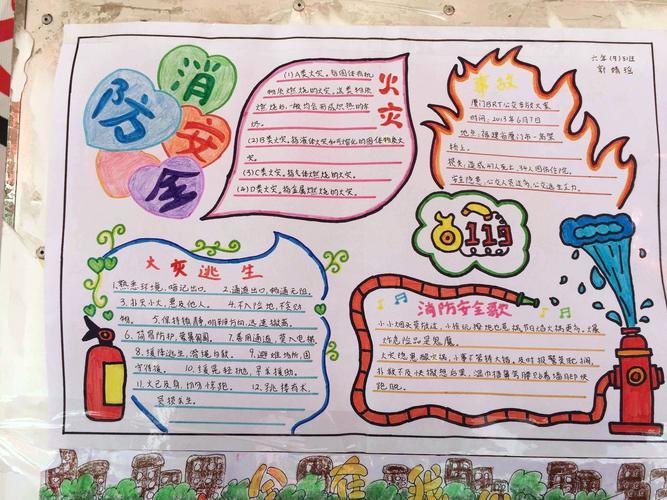 消
防
安
全
火灾
(1)A类火灾。指固体有机
物质燃烧的火灾，这类物质
燃烧
一般均会形成炽热的余
烬。
(2)B类火灾。指液体火灾和可熔化的固体物质火
灾。
(3)C类火灾。指气体燃烧的火灾。
(4)D类火灾。指金属燃烧的火灾。
事故
厦门BRT公交车放火案
时间：2013年6月7日
地点：福建省厦门市一高架
桥上。
损失：造成47人死亡，34人因伤住院。
安全隐患：公交人员过多，公交逃生工力。
六年
班
119
火灾逃生
1.熟悉环境，暗记出口。
2.通道出口，畅通无阻。
3.扑灭小火，惠及他人。
4.不入险地，不贪财
物。
5.保持镇静，明辨方向，迅速撤离。
6.简易防护，蒙鼻匍匐。
7.善用通道，莫入电梯
8.缓降逃生，滑绳自救。
9.避难场所，固
守待援。
10.缓晃轻抛，寻求援助。
11.火已及身，切勿惊跑。
12.跳楼有术，
虽损求生。
消防安全歌
小小烟头莫放过，小孩玩
也惹祸 节日焰火祸更多，爆
炸危险品是恶魔。
火灾隐患酿火祸，小事不管转大祸，及时报警莫耽搁，
扑救不及快撤然后果，湿巾捂鼻
跑脱。